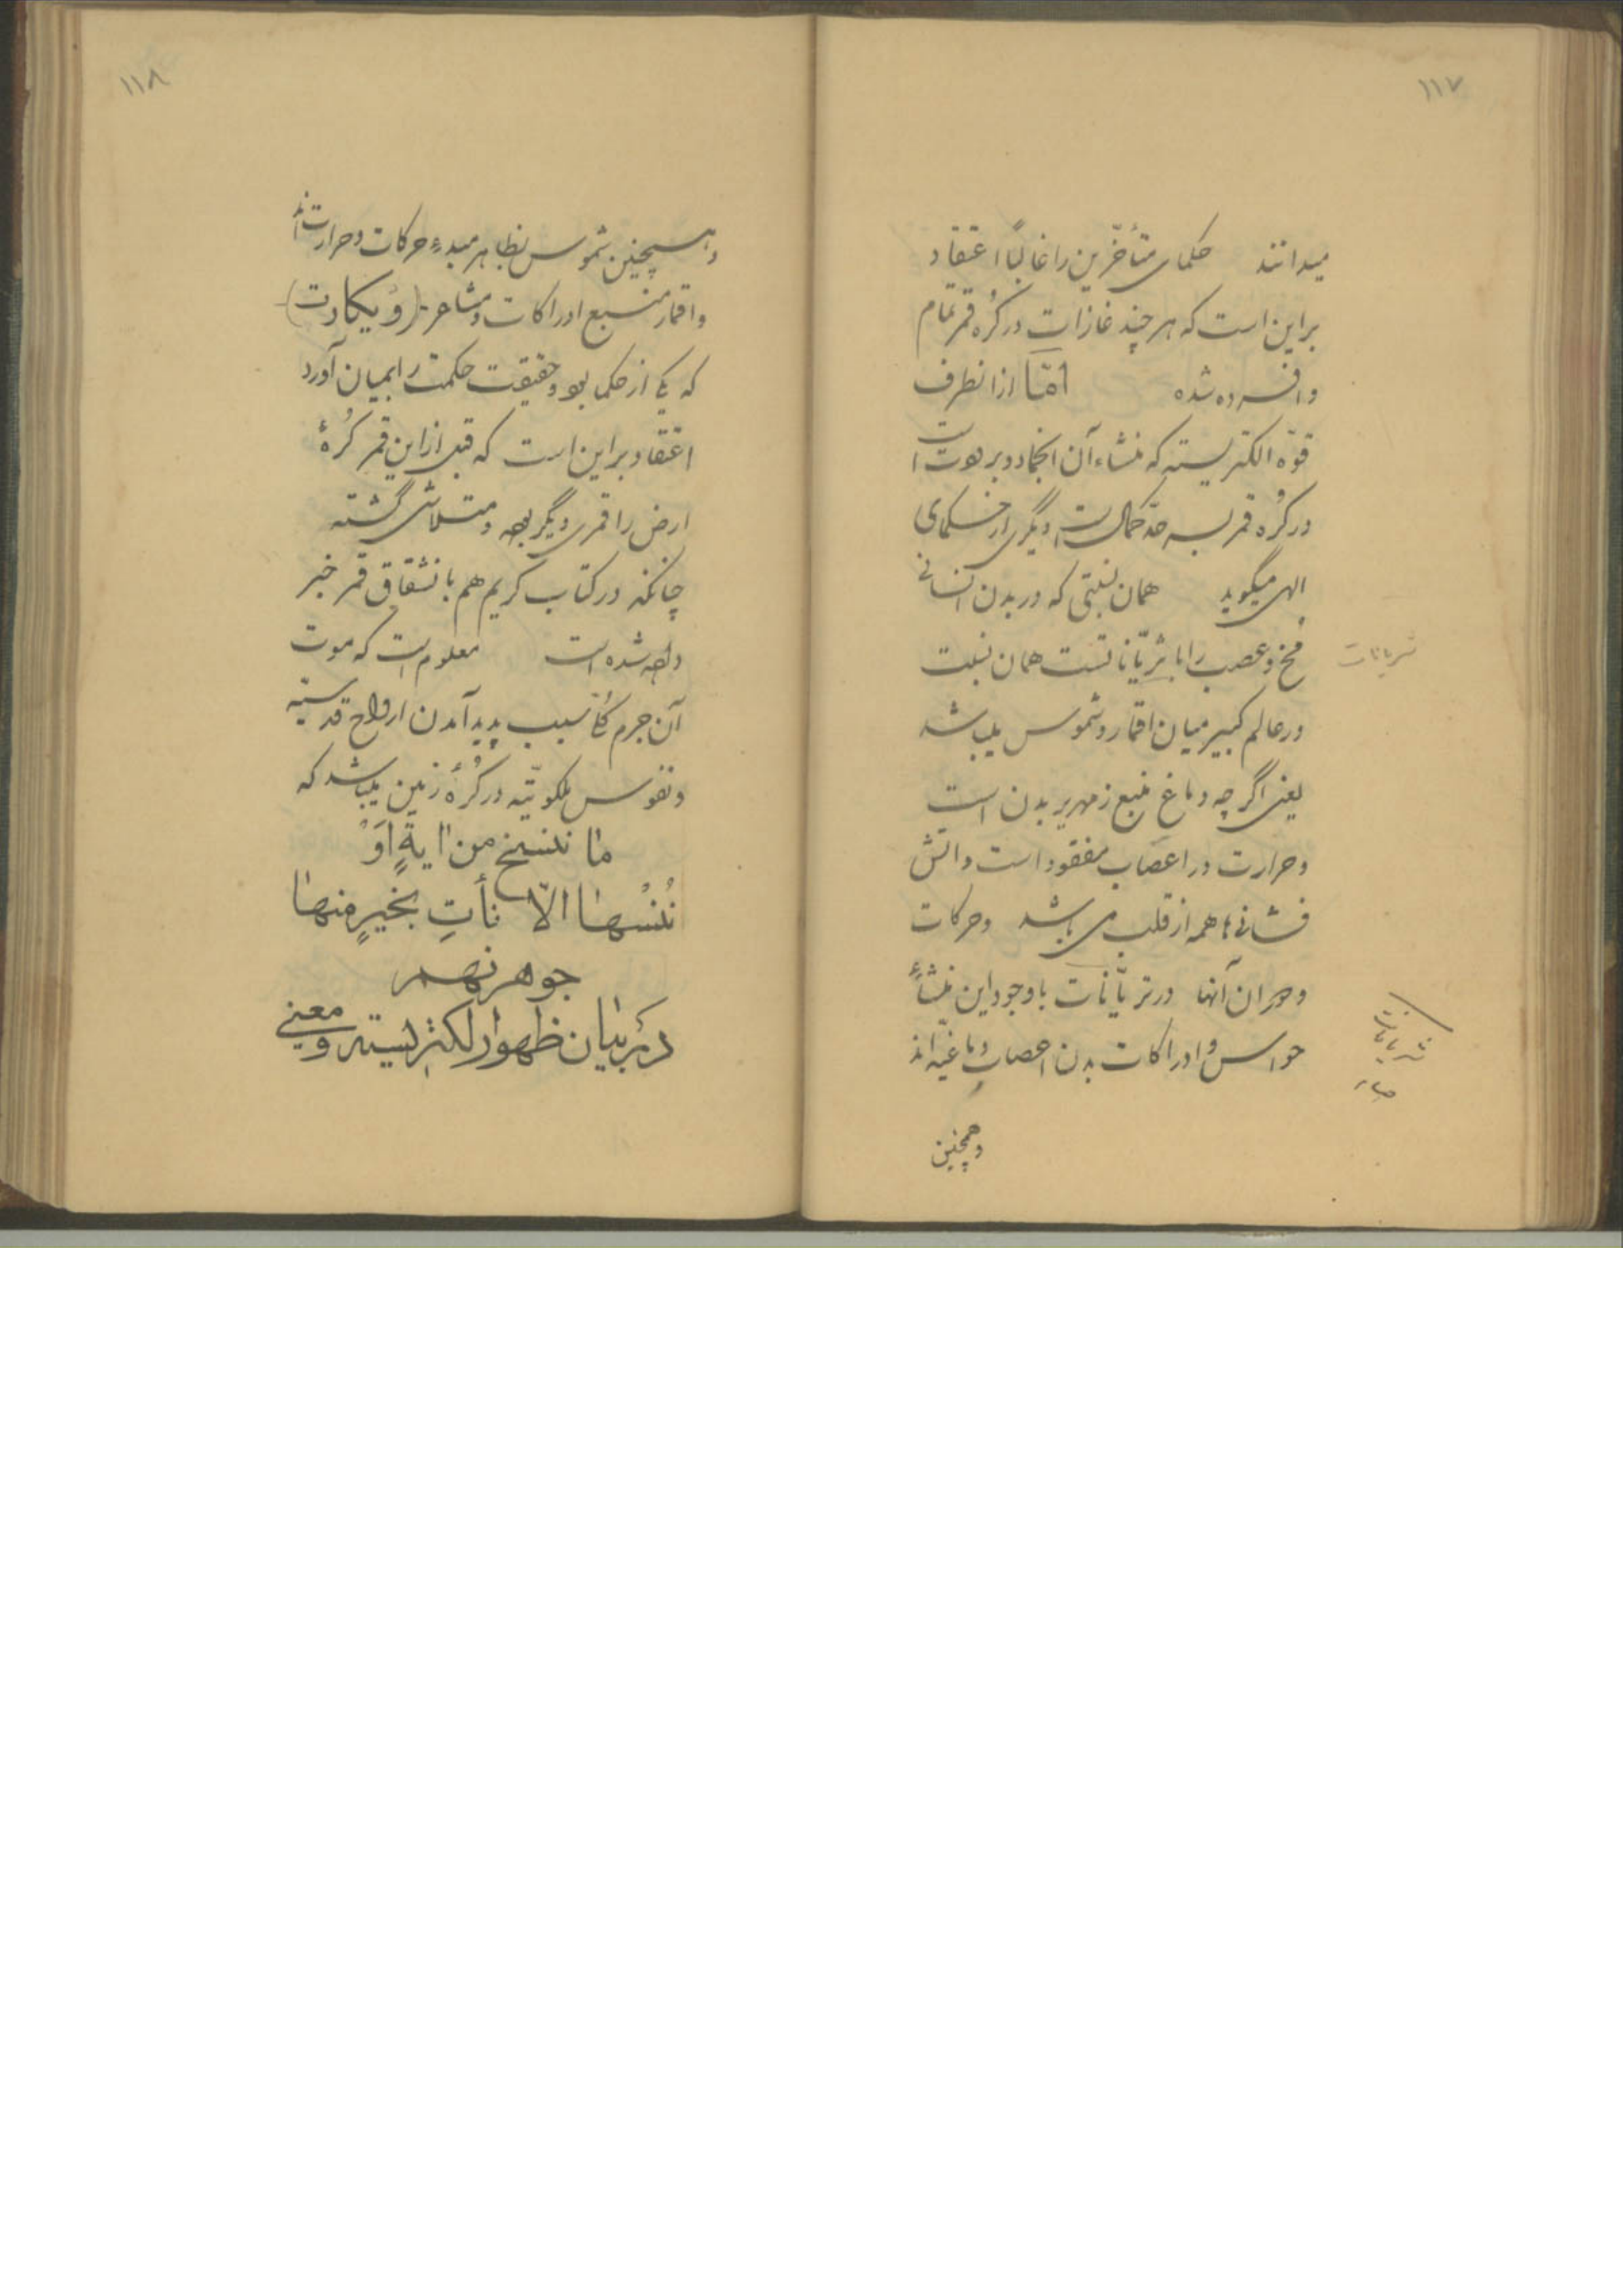 ۱۱۷
میدانند حکمای متأخّرین را غالباً اعتقاد
براین است که هرچند غازات در کُره قمر تمام
وافسرده شده امّا ازانطرف
قوّه الکتریسته که منشاء آن انجماد و برودت است
در کُره قمر بسرحدّ کمال است دیگری از حکمای
الهی میگوید همان نسبتی که در بدن انسانی
مخ و عصب را با شریّانات است همان نسبت
شریانات
در عالم کبیر میان اقمار و شموس میباشد
یعنی اگرچه دماغ منبع زمهریر بدن است
وحرارت در اعصاب مفقود است و اتش
فشانی‌ها همه از قلب می‌باشد وحرکات
ودوران آنها در شریّانات با وجود این منشأ
شریانات
حواس و ادراکات بدن اعصاب دماغیّه‌اند
وهمچنین
۱۱۸
وهمچنین شموس بظاهر مبدء حرکات و حرارت‌اند
واقمار منبع ادراکات و مشاعر (دیکارت)
که یکی از حکما بود و حقیقت حکمت را بمیان آورد
اعتقاد براین است که قبل از این قمر کُرهٔ
ارض را قمری دیگر بوده و متلاشی گشته
چنانکه در کتاب کریم هم بانشقاق قمر خبر
داده شده است معلوم است که موت
آن جرم سبب پدید آمدن ارواح قدسیّه
ونفوس ملکوتیّه در کُرهٔ زمین میباشد که
ما ننسخ من ایةٍ اَوْ
نُنْسُها الّا نأتِ بخیرٍ منها
جوهر نهم
در بیان ظهور الکتریسیته و معنی